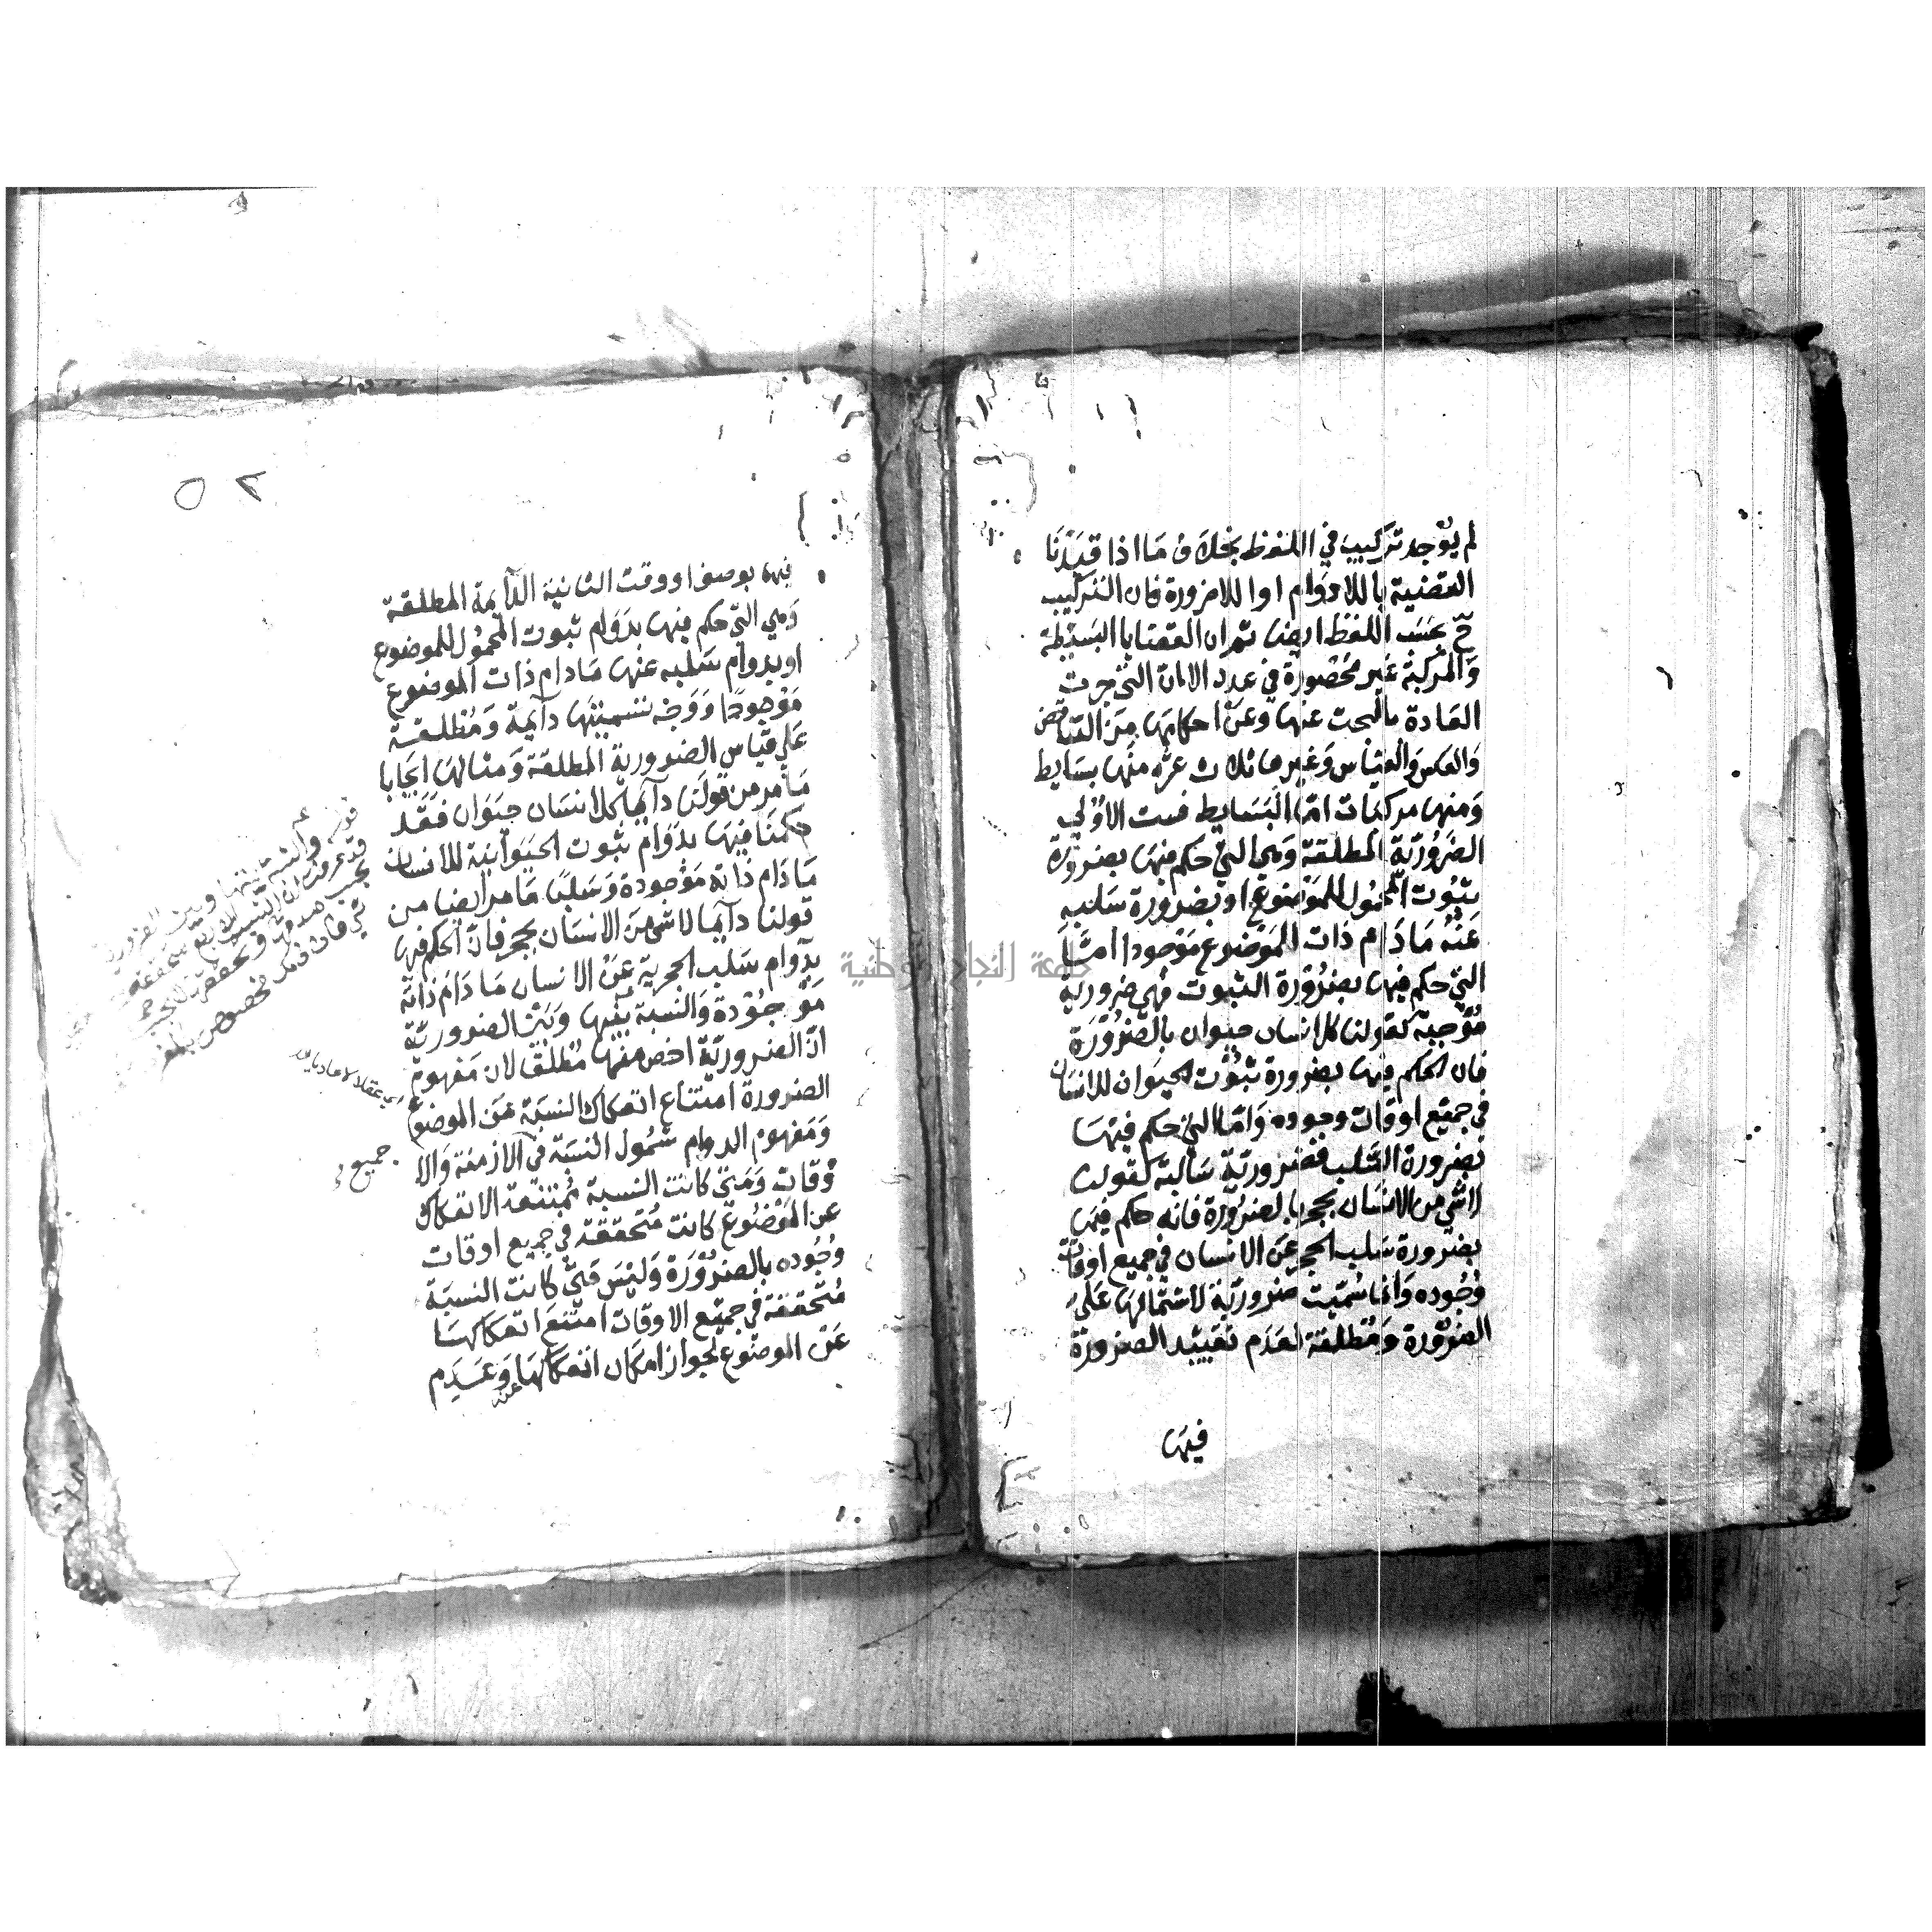 لم يوجد تركيب في اللفظ بخلاف ما اذا قيدنا
القضية باللادوام او اللاضرورة فان التركيب
ح بحسب اللفظ ايضا ثم ان القضايا البسيطة
والمركبة غير محصورة في عدد الا ان التي جرت
العادة بالبحث عنها وعن احكامها من التناقض
والعكس والقياس وغيرها ثلاث عشره منها بسايط
ومنها مركبات اما البسايط فست الاولي
الضرورية المطلقة وهي التي حكم فيها بضرورة
ثبوت المحمول للموضوع او بضرورة سلبه
عنه ما دام ذات الموضوع موجودا اما
التي حكم فيها بضرورة الثبوت فهي ضرورية
موجبة كقولنا كل انسان حيوان بالضرورة
فان الحكم فيها بضرورة ثبوت الحيوان للانسان
في جميع اوقات وجوده واما التي حكم فيها
بضرورة السلب فضرورية سالبة كقولنا
لا شي من الانسان بحجر بالضرورة فانه حكم فيها
بضرورة سلب الحجر عن الانسان في جميع اوقات
وجوده وانما سميت ضرورية لاشتمالها علي
الضرورة ومطلقة لعدم تقييد الضرورة
فيها
٥٢
فيها بوصف او وقت الثانية الدآيمة المطلقة
وهي التي حكم فيها بدوام ثبوت المحمول للموضوع
او بدوام سلبه عنها ما دام ذات الموضوع
موجودا ووجه تسميتها دآيمة ومطلقة
علي قياس الضرورية المطلقة ومثالها ايجابا
ما مر من قولنا دآيما كل انسان حيوان فقد
حكمنا فيها بدوام ثبوت الحيوانية للانسان
ما دام ذاته موجودة وسلبا ما مر ايضا من
قولنا دآيما لا شي من الانسان بحجر فان الحكم فيها
بدوام سلب الحجرية عن الانسان ما دام ذاته
موجودة والنسبة بينها وبين الضرورية
ان الضرورية اخص منها مطلقا لان مفهوم
الضرورة امتناع انفكاك النسبة عن الموضوع
ومفهوم الدوام شمول النسبة في الازمنة والا
وقات ومتي كانت النسبة ممتنعة الانفكاك
عن الموضوع كانت متحققة في جميع اوقات
وجوده بالضرورة وليس متي كانت النسبة
متحققة في جميع الاوقات امتنع انفكاكها
عن الموضوع لجواز امكان انفكاكها وعدم
عنه
قوله والنسبة بينها وبين الضرورية
قد عرفت ان النسب الاربع
اي عقلا لا عاديا
جميع
جامعة النجاح الوطنية